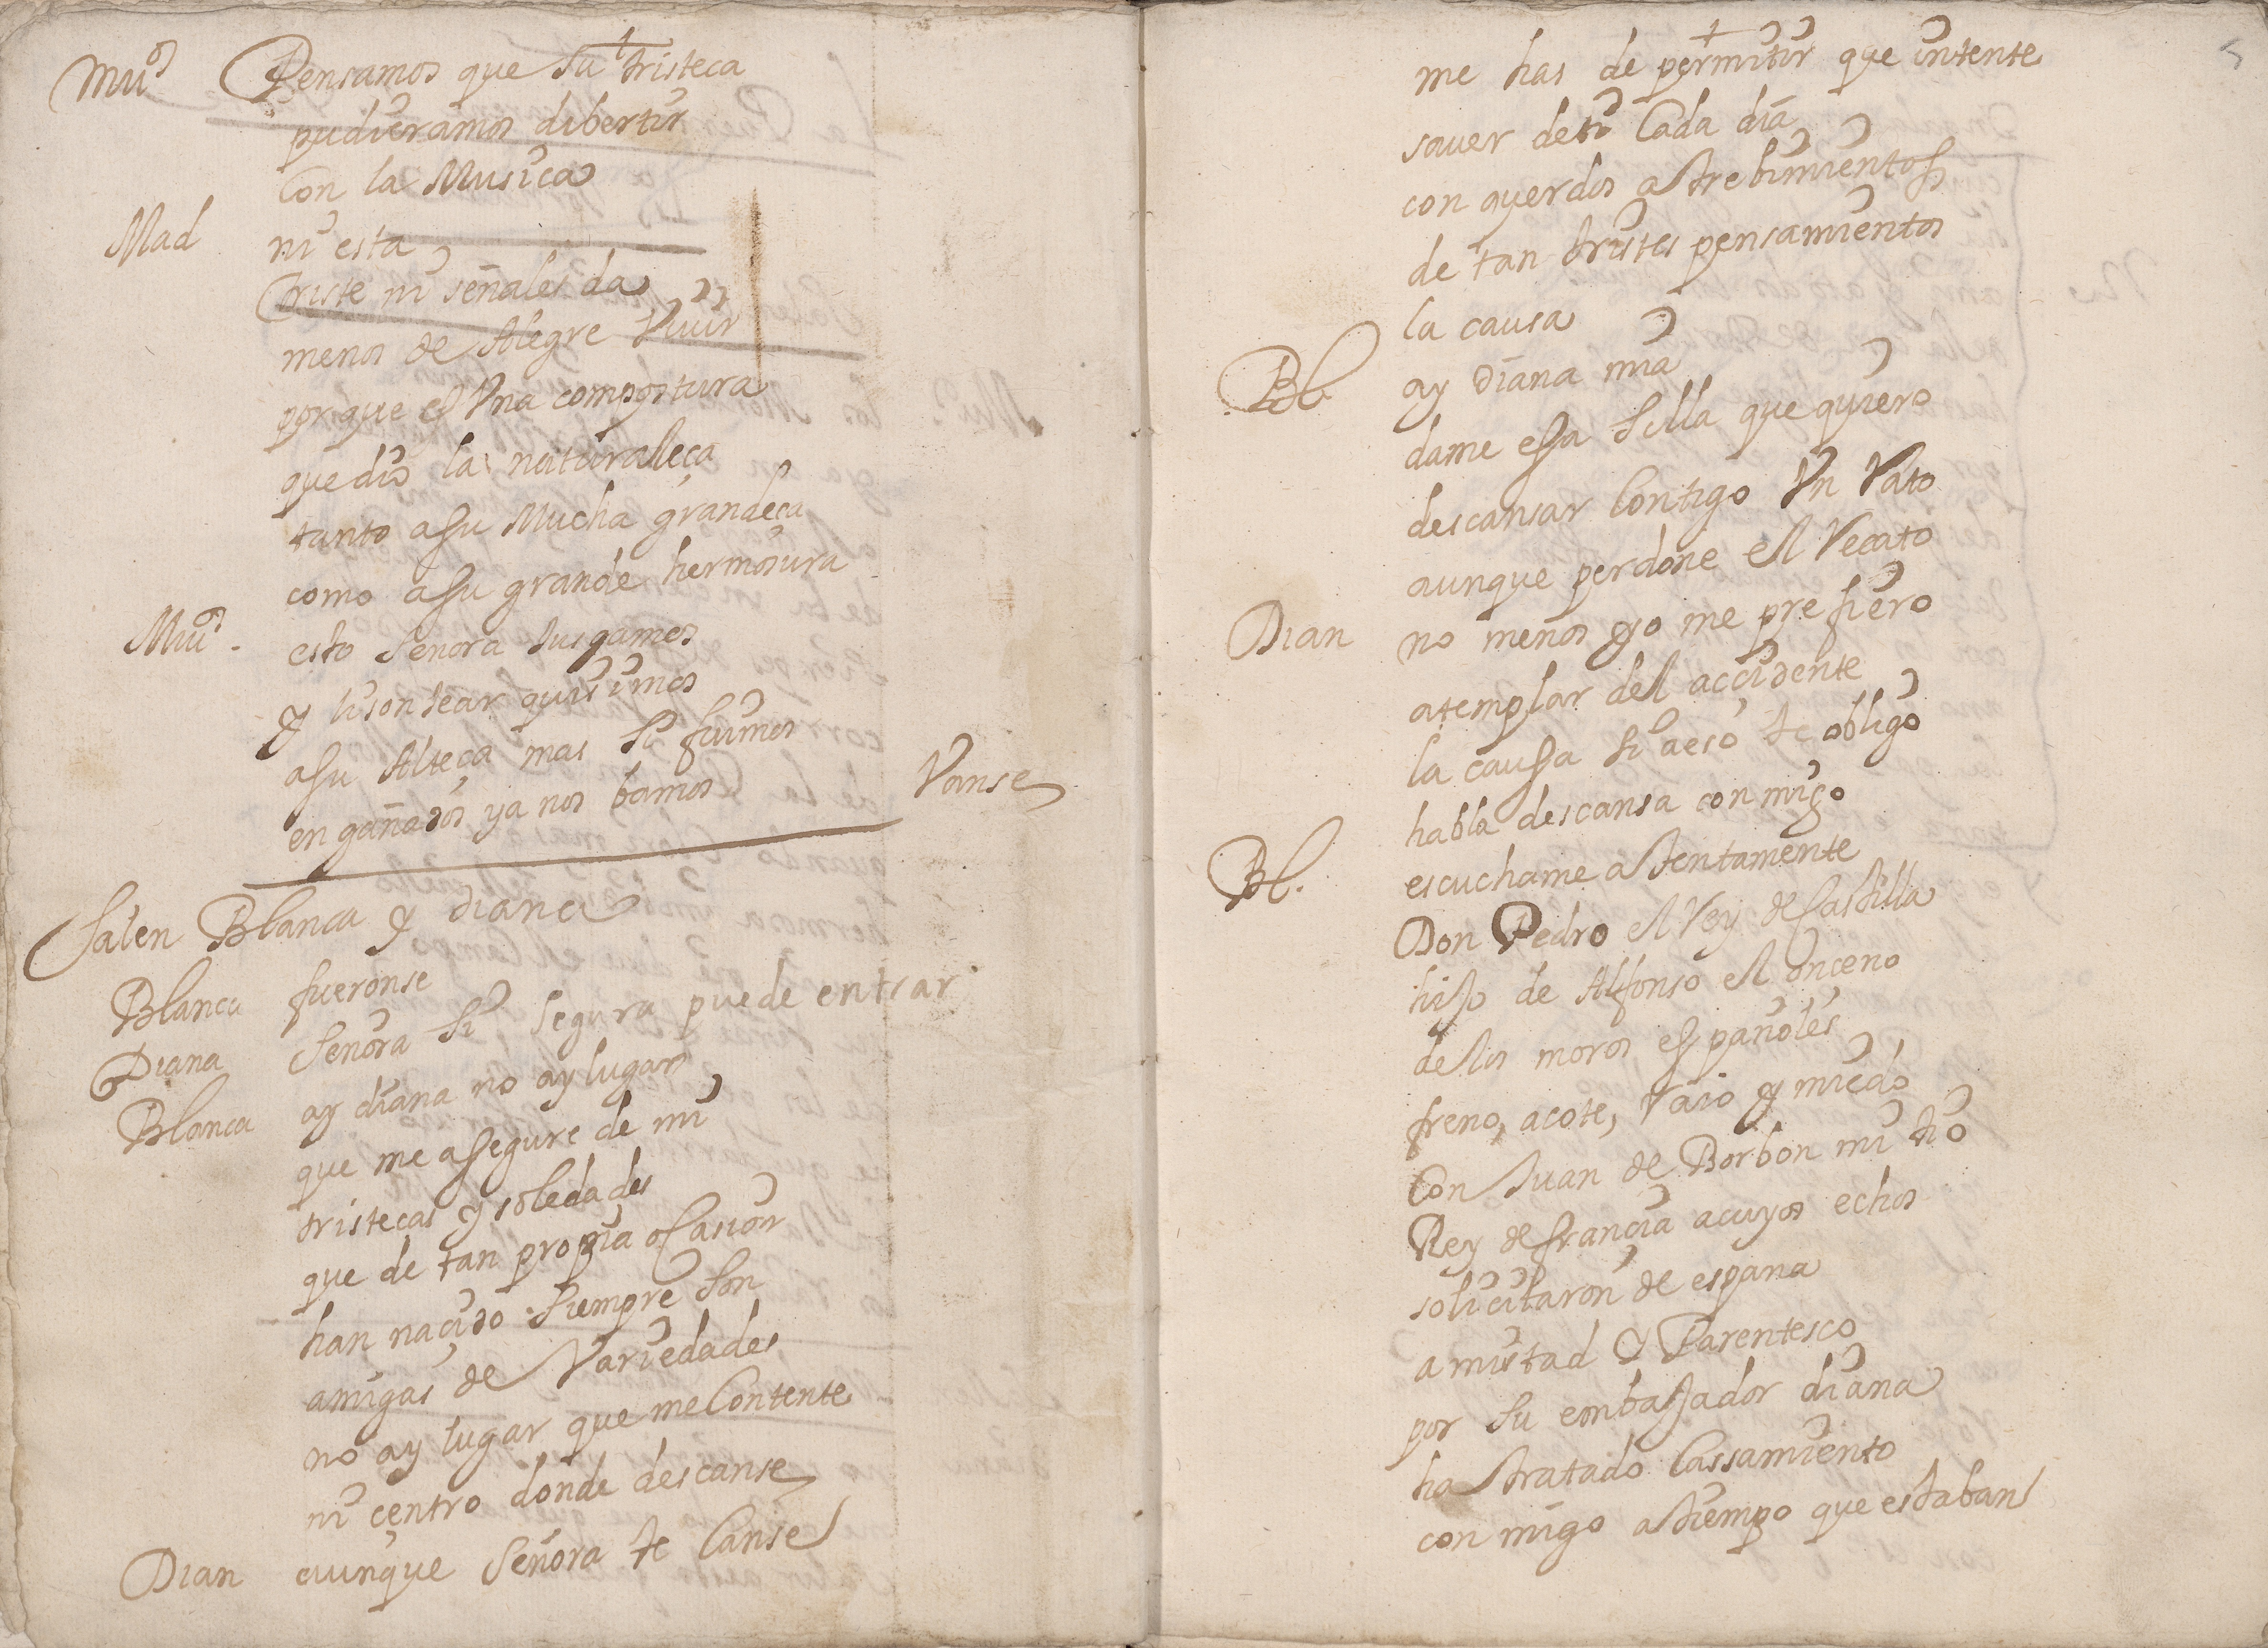 Mu.º Pensamos que su tristeca
pudieramos dibertir
Con la Musica
Mad ni esta
triste ni señales da
menos de Alegre Viuir
porque es Vna compostura
que dio la naturaleça
tanto a su Mucha grandeça
como a su grande hermosura
Mu.º esto Senora Jusgamos
y lisonJear quisimos
a su Alteça mas si fuimos
engañados ya nos bamos Vanse
Salen Blanca y diana
Blanca fueronse
Diana Señora si segura puede entrar
Blanca ay diana no ay lugar
que me assegure de mi
tristeças y soledades
que de tan propia ocasion
han nacido siempre son
amigas de Variedades
no ay lugar que me Contente
ni centro donde descanse
Dian aunque Señora te Canse
5
me has de permitir que intente
sauer de ti Cada dia
con querdos atrebimientos
de tan tristes pensamientos
la causa
Bl. ay diana mia
dame essa silla que quiero
descansar Contigo Vn Rato
aunque perdone el Recato
Dian no menos yo me prefiero
a templar del accidente
la caussa si a eso te obligo
habla descansa conmigo
Bl. escuchame atentamente
Don Pedro el Rey de Castilla
hijo de Alfonso el onceno
de los moros españoles
freno, acote, Raio y miedo
Con Juan de Borbon mi tio
Rey de francia a cuyos echos
solicitaron de espana
amistad y Parentesco
por su embajador diana
ha tratado Cassamiento
con migo a tiempo que estaban